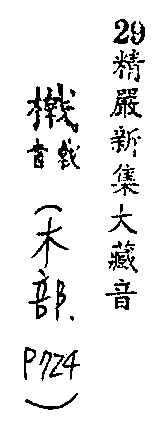 29精嚴新集大藏音
橶音戢(木部.P724)